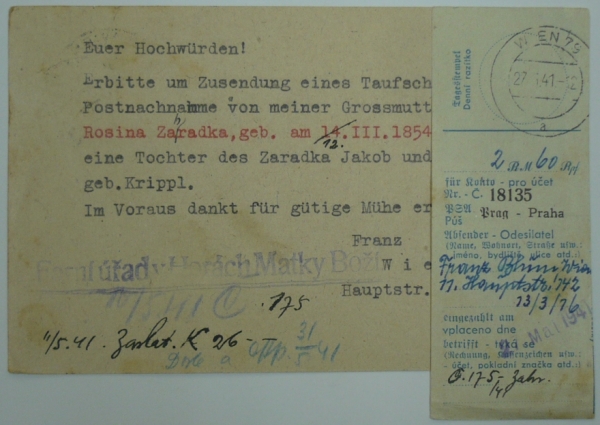 Euer Hochwürden!
Erbitte um Zusendung eines Taufsch
Postnachnahme von meiner Grossmutt
Rosina Zahradka, geb. am 14. III. 1854
12.
eine Tochter des Zaradka Jakob und
geb. Krippl.
Im Voraus dankt für gütige Mühe er
Franz
Wie
Hauptstr.
Farní úřad v Horách Matky Boží
175
11/5.41. Zaslat. K 26-
31/5 41
WIEN 79
27. 41
a
Tagesstempel
Denní razítko
2 RM 60 Rpf
für Konto - pro účet
Nr. - Č. 18135
PSA Prag - Praha
PÚŠ
Absender - Odesilatel
(Name, Wohnort, Straße usw.
jméno, bydliště, ulice atd.)
Franz Wien
Hauptstr. 142
13/3/76
eingezahlt am
vplaceno dne
Mai 1941
betrifft - týká se
(Rechnung, usw.:
účet, pokladní značka atd.:)
175